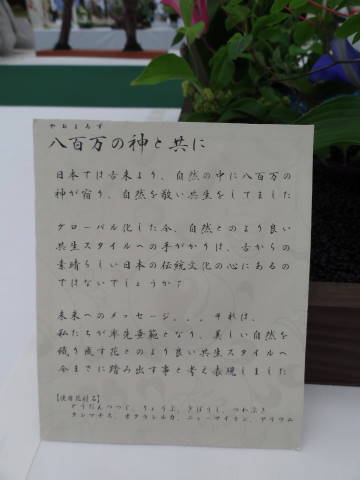 やおよろず
八百万の神と共に
日本では古来より、自然の中に八百万の
神が宿り、自然を敬い共生をしてました
グローバル化した今、自然とのより良い
共生スタイルへの手がかりは、古からの
素晴らしい日本の伝統文化の心にあるの
ではないでしょうか？
未来へのメッセージ．．．それは、
私たちが率先垂範となり、美しい自然を
織り成す花とのより良い共生スタイルへ
今まさに踏み出す事と考え表現しました
【使用花材名】
どうだんつつじ、りょうぶ、ぎぼうし、つわぶき
クレマチス、オクラレルカ、ニューサイラン、アリウム